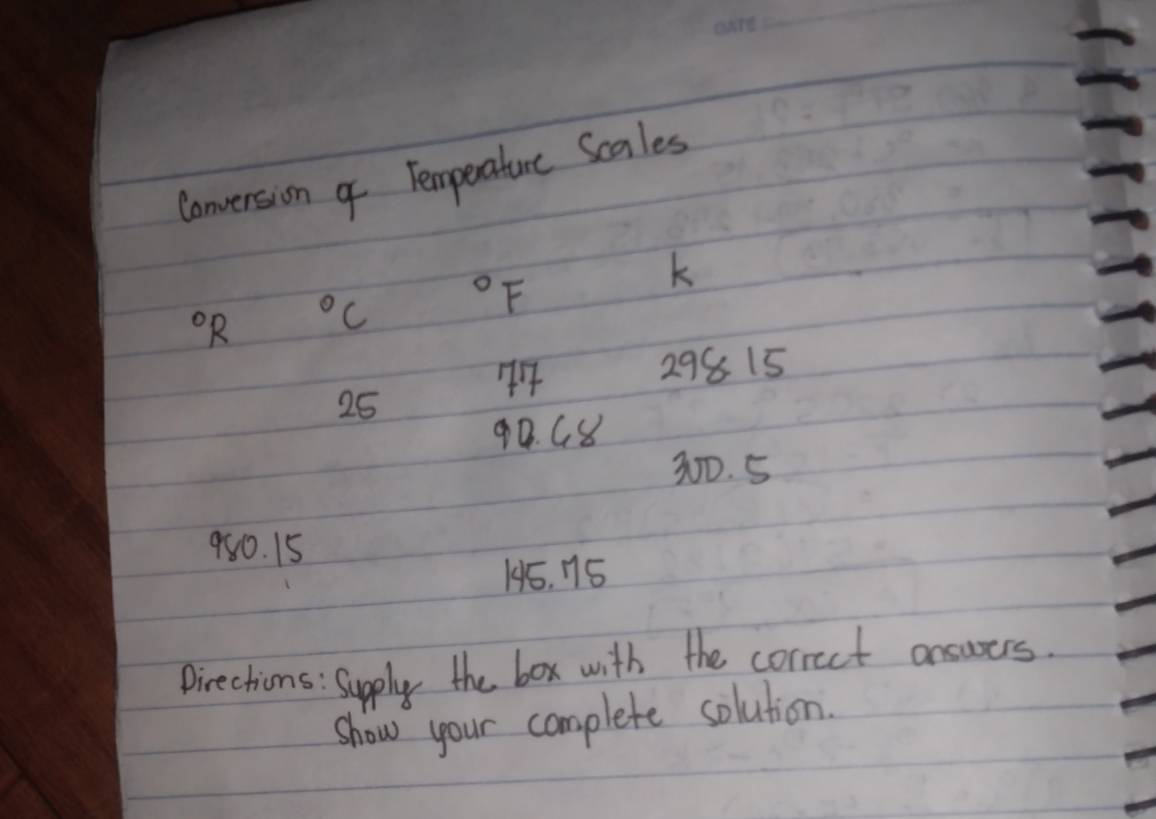 DATE
Conversion of Temperature Scales
°R °C °F k
25 77 298.15
90.68
300.5
980.15
145.75
Directions: Supply the box with the correct answers.
Show your complete solution.